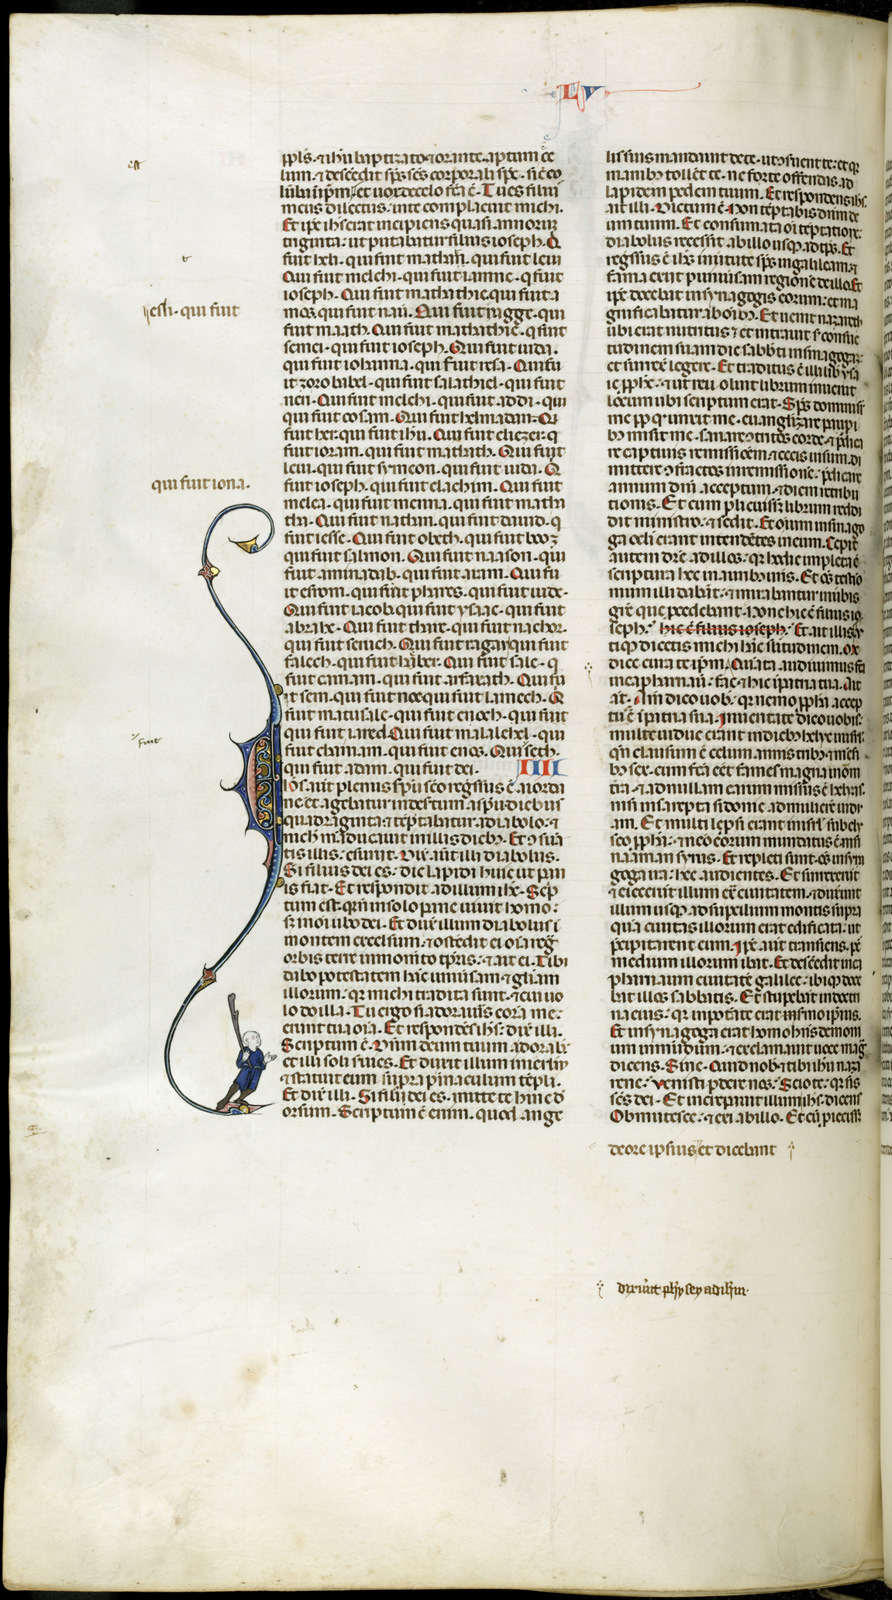 LV
ppl̄s · ⁊ ihū baptizato ⁊ orante · aptum ē ce
lum · ⁊ descēdit sp̄s sc̄s corporali spē · sic̄ co
lūba ī ip̄m · et uox de celo fc̄a ē · Tu es filius
meus dilectus · in te complacuit michi ·
Et ip̄e ih̄s erat incipiens quasi annorum
triginta · ut putabatur filius ioseph · Q̄
fuit heli · qui fuit mathan̄ · qui fuit leui
Qui fuit melchi · qui fuit iamne · q̄ fuit
ioseph · Qui fuit mathathie · qui fuit a
mos · qui fuit naū · Qui fuit nagge · qui
fuit maath · Qui fuit mathathie · q̄ fuit
semei · qui fuit ioseph · Qui fuit iuda ·
qui fuit iohanna · qui fuit resa · Qui fu
it zorobabel · qui fuit salathiel · qui fuit
neri · Qui fuit melchi · qui fuit addi · qui
qui fuit cosam · Qui fuit helmadam · Q̄
fuit her · qui fuit ihū · Qui fuit eliezer · q̄
fuit ioram · qui fuit mathath · Qui fuit
leui · qui fuit symeon · qui fuit iuda · Q̄
fuit ioseph · qui fuit eliachim · Qui fuit
melea · qui fuit menna · qui fuit matha
tha · Qui fuit nathan · qui fuit dauid · q̄
fuit iesse · Qui fuit obeth · qui fuit booz
qui fuit salmon · Qui fuit naason · qui
fuit aminadab · qui fuit aram · Qui fu
it esrom · qui fuit phares · qui fuit iude ·
Qui fuit iacob · qui fuit ysaac · qui fuit
abrahe · Qui fuit thare · qui fuit nachor ·
qui fuit seruch · Qui fuit ragau qui fuit
falech · qui fuit heber · Qui fuit sale · q̄
fuit cainam · qui fuit arfaxath · Qui fu
it sem · qui fuit noe qui fuit lamech · Q̄
fuit matusale · qui fuit enoch · qui fuit
qui fuit iared · Qui fuit malalehel · qui
fuit chainam · qui fuit enos · Qui seth ·
qui fuit adam · qui fuit dei · IIII
Ih̄s aut̄ plenus spū sc̄o regressus ē a iorda
ne et agebatur in desertum a spū diebus
quadraginta ⁊ tēptabatur a diabolo · ⁊
nich̄ māducauit in illis dieb̄ · Et ꝯsūma
tis illis · esuriit · Dix̄ aūt illi diabolus ·
Si filius dei es · dic lapidi huic ut pan
is fiat · Et respondit ad illum ih̄s · Scrip
tum est · qr̄ n̄ in solo pane uiuit homo :
s; in oī ūbo dei · Et dux̄ illum diabolus ī
montem excelsum · ⁊ ostēdit ei oīa reḡ
orbis terre in momēto tp̄ris · ⁊ ait ei · Tibi
dabo potestatem hāc uniūsam ⁊ gl̄iam
illorum · qr̄ michi tradita sunt · ⁊ cui uo
lo do illa · Tu ergo si adoraūis corā me ·
erunt tua oīa · Et respondēs ih̄s · dix̄ illi ·
Scriptum ē · Dn̄m deum tuum adorab̄ ·
et illi soli suies · Et duxit illum in ierl̄m
⁊ statuit eum supra pinaculum tēpli ·
Et dix̄ illi · Si filius dei es · mitte te hinc d
orsum · Scriptum ē enim · quod ange
lis suis mandauit de te · ut ꝯseruent te : et qr̄
manib; tollēt te · ne forte offendas ad
lapidem pedem tuum · Et respondens ih̄s
ait illi · Dictum ē · Non tēptabis dn̄m de
um tuum · Et consumata oī tēptatione ·
diabolus recessit ab illo usq; ad tp̄s · Et
regssus ē ih̄s in uirtute sp̄s in galileam · ⁊
fama exiit p̄ uniūsam regionē de illo · Et
ip̄e docebat in synagogis eorum : et ma
gnificabatur ab oīb; · Et uenit nazareth
ubi erat nutritus · ⁊ et intrauit s̄ consue
tudinem suam die sabb̄ti in sinagogā ·
et surrexit legere · Et traditus ē illi lib̄ ysa
ie pp̄he · ⁊ ut reuoluit librum inuenit
locum ubi scriptum erat · Sp̄s domini sr̄
me pp̄ q̄ unxit me · euangl̄izare paupi
b; misit me · sanare ꝯtritos corde · ⁊ p̄dica
re captiuis remissiōem · ⁊ cecis uisum · di
mittere ꝯfractos in remissionē · p̄dicare
annum dn̄i acceptum · ⁊ diem retribu
tionis · Et cum plicuiss; librum reddi
dit ministro · ⁊ sedit · Et oīum in sinago
ga oculi erant intendētes in eum · Cepit
autem dic̄e ad illos · qr̄ hodie impleta ē
scriptura hec in aurib; ur̄is · Et oēs testīo
nium illi dabāt · ⁊ mirabantur in ūbis
grē que pcedebant · Non hic ē filius io
seph · hic ē filius ioseph · Et ait illis
tiq; dicetis michi hāc s̄ilitudinem · Me
dice cura te ip̄m · Quāta audiuimus fc̄a
in capharnaū · fac ⁊ hic ī patria tua · Ait
at̄ · Am̄ dico uob̄ · qr̄ nemo pp̄ha accep
tus ē ī patria sua · In ueritate dico uobis ·
multe uidue erant in dieb; helye in isrl̄
qn̄ clausum ē celum annis trib; · ⁊ mēsi
b; sex · cum fc̄a eēt fames magna in oī
tra · ⁊ ad nullam earum missus ē helyas ·
nisi in sarepta sidonie · ad mulierē uidu
am · Et multi lep̄si erant in isrl̄ sub hely
seo pp̄ha · ⁊ nemo eorum mundatus ē nisi
naaman syrus · Et repleti sunt oēs in syna
goga ira · hec audientes · Et surrexerūt
⁊ eiecerunt illum ex̄ ciuitatem · ⁊ duxerūt
illum usq; ad supcilium montis supra
quē ciuitas illorum erat edificata · ut
p̄cipitarent eum · Ip̄e aut̄ transiens · p̄
medium illorum ibat · Et descēdit in ca
pharnaum ciuitatē galilee · ibiq; doce
bat illos sabbatis · Et stupebāt in doctri
na eius · qr̄ in potestate erat sermo ip̄ius ·
Et in synagoga erat homo h̄ns demoni
um inmūdum · ⁊ exclamauit uoce mag̃
dicens · Sine · Quid nob̄ ⁊ tibi ihū naza
rene · Venisti pdere nos · Scio te qr̄ sis
sc̄s dei · Et increpauit illum ih̄s dicens
Obmutesce · ⁊ exi ab illo · Et cū piecisss̄
de ore ipsius et dicebant
dixerūt ph̄ysey ad ih̄m ·
est
t
esli · qui fuit
qui fuit iona ·
fuit